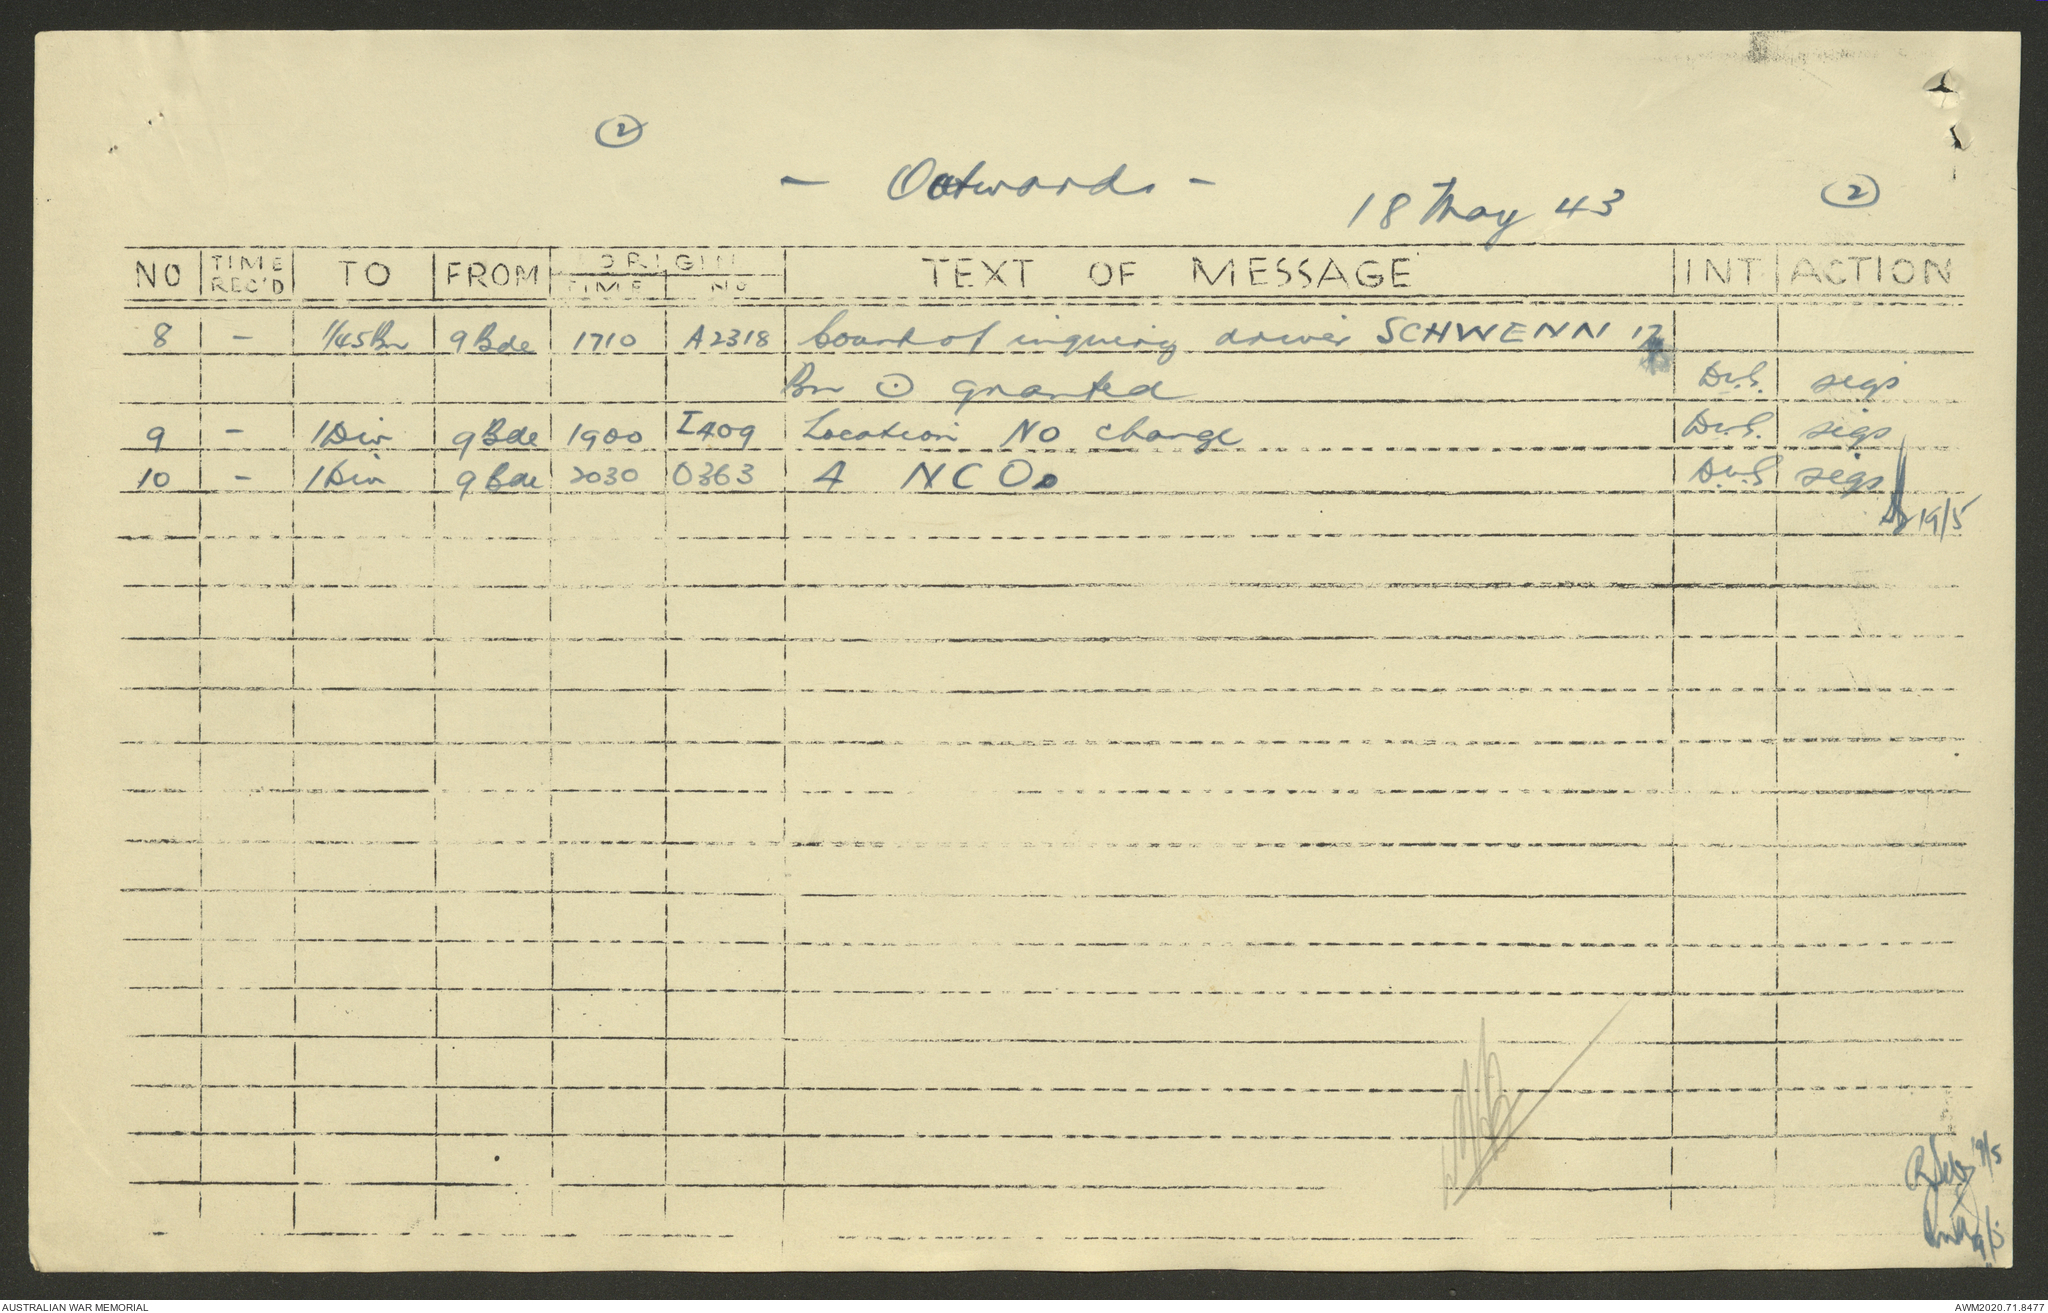 ②
- Outwards -
18 May 43
②
NO TIME REC'D TO FROM ORIGIN TIME NO TEXT OF MESSAGE INT ACTION
8 - 1/45 Bn 9 Bde 1710 A2318 Court of inquiry driver SCHWENN 17
Bn ⊙ granted D.v.S. sigs
9 - 1 Div 9 Bde 1900 I409 Location NO change D.v.S. sigs
10 - 1 Div 9 Bde 2030 O363 4 NCOs D.v.S sigs
19/5
19/5
19/5
AUSTRALIAN WAR MEMORIAL
AWM2020.71.8477